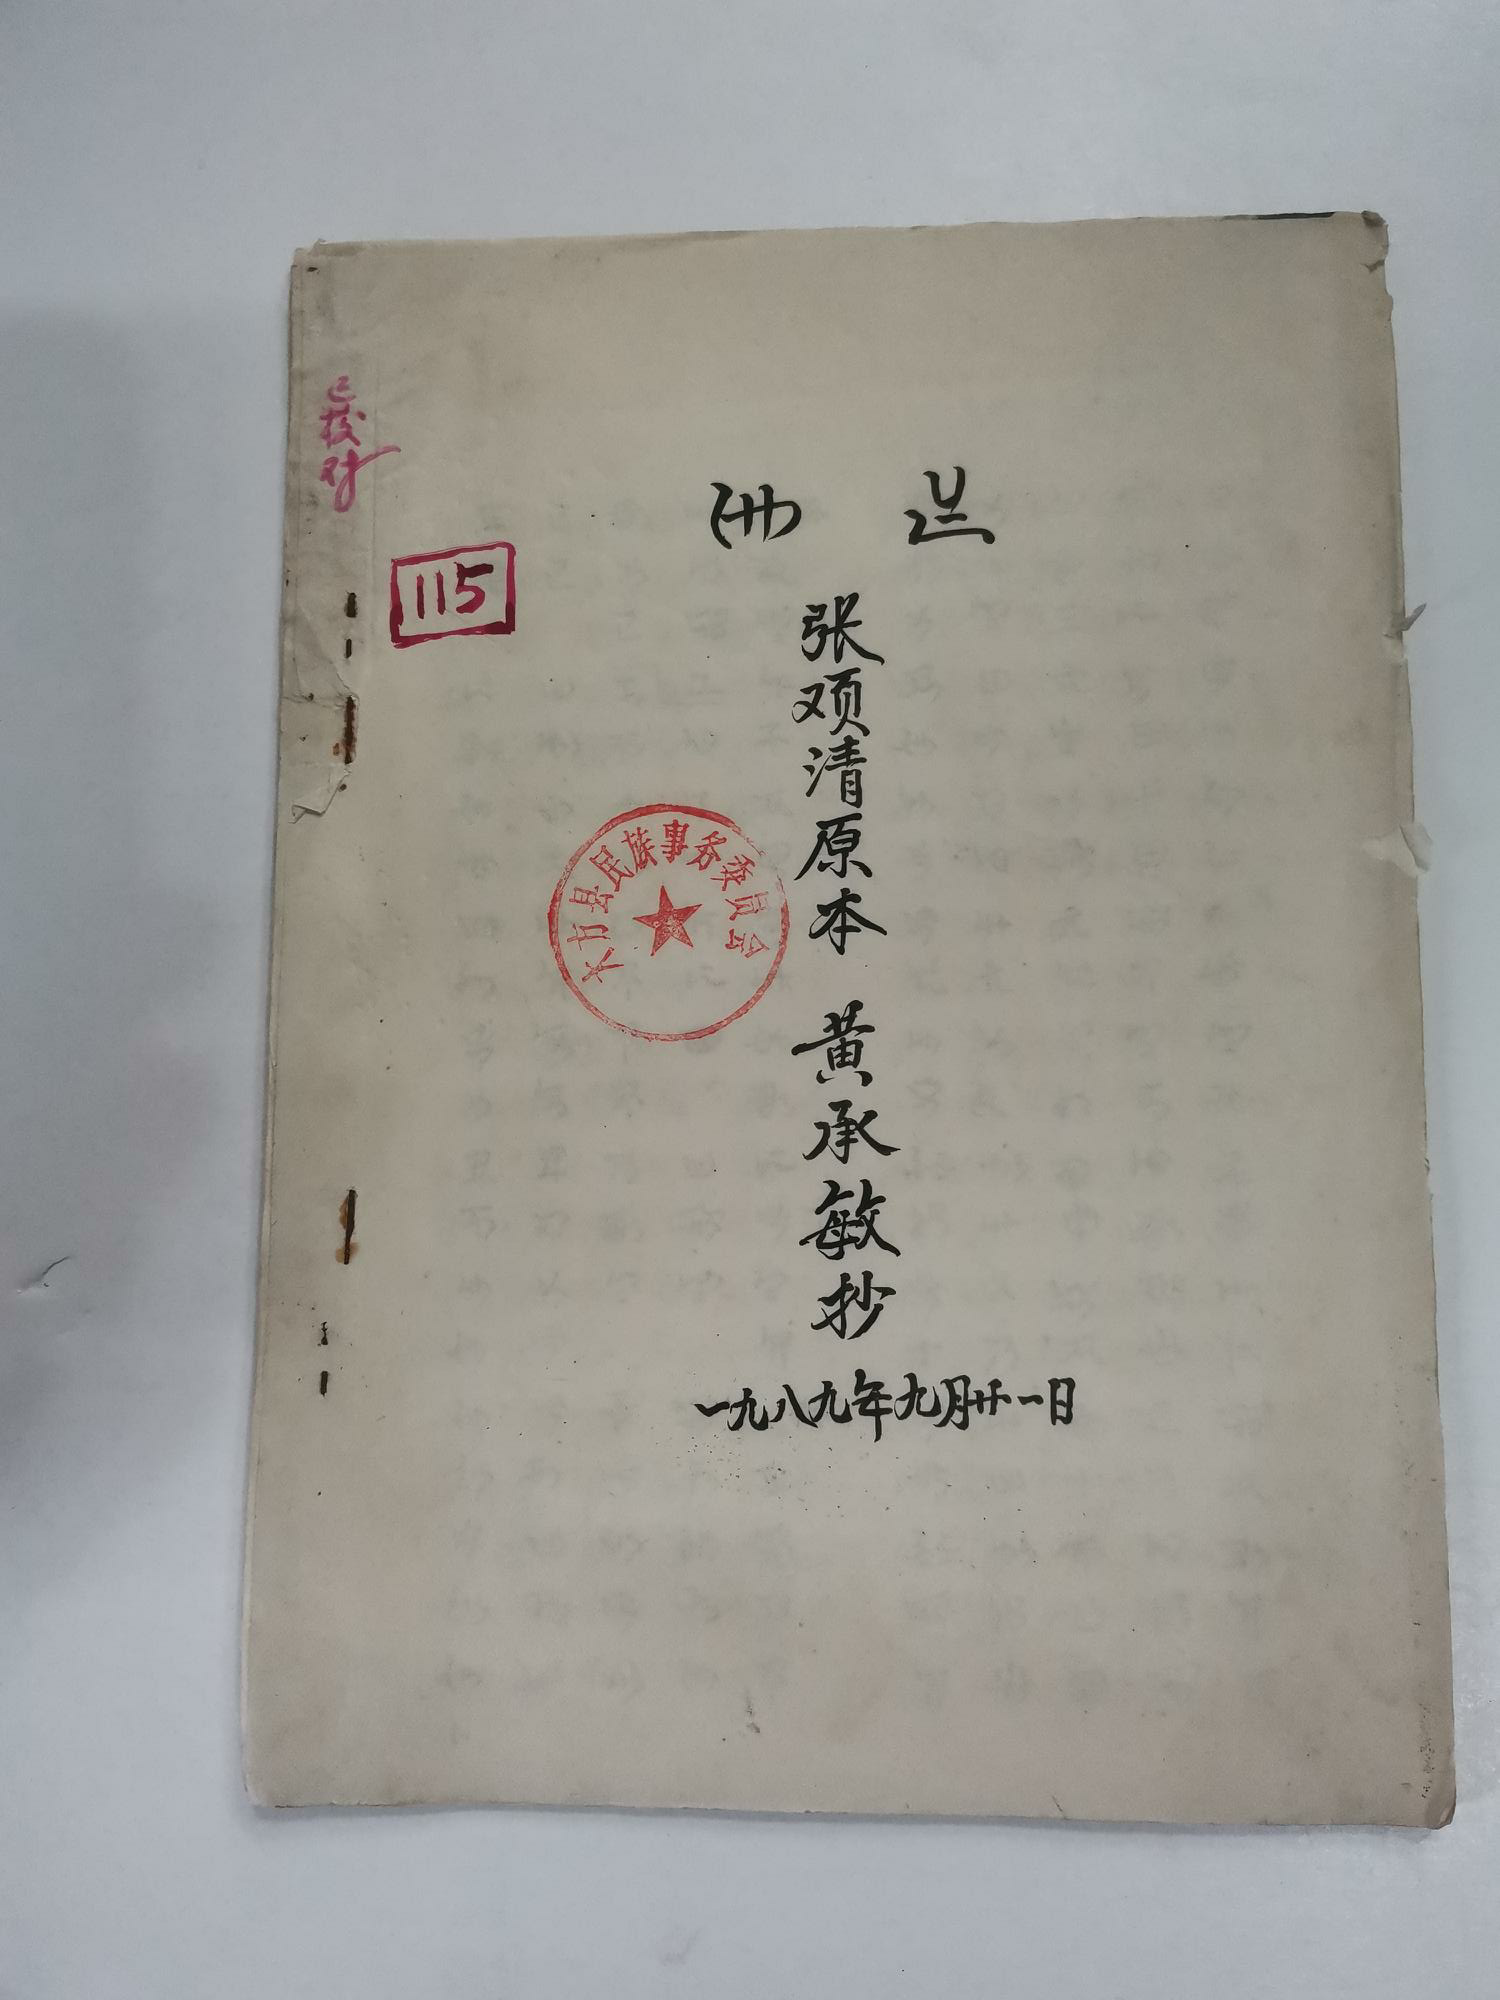 已校对
115
张清原本 黄承敏抄
大方县民族事务委员会
一九八九年九月廿一日